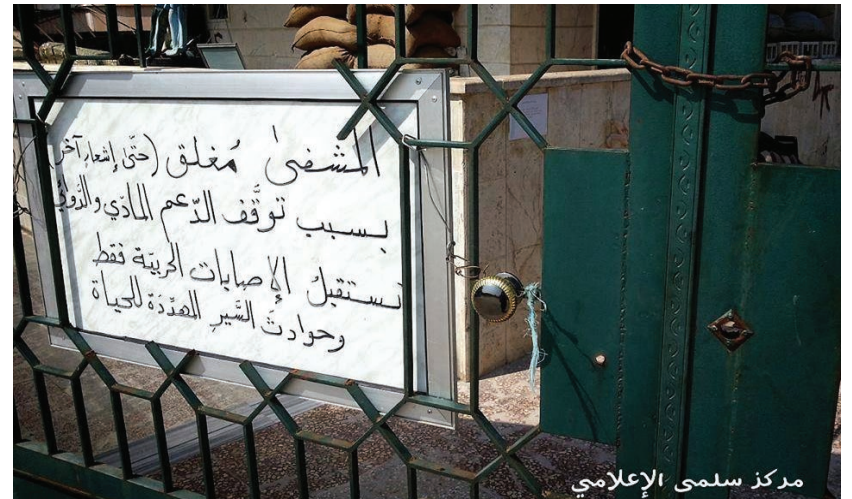 المشفى مُغلق (حتّى إشعارٍ آخر)
بسبب توقُّف الدّعم المادّي والدّوائي
نستقبلُ الإصابات الحربيّة فقط
وحوادثَ السَّيرِ المهدِّدَة للحياة
مركز سلمى الإعلامي